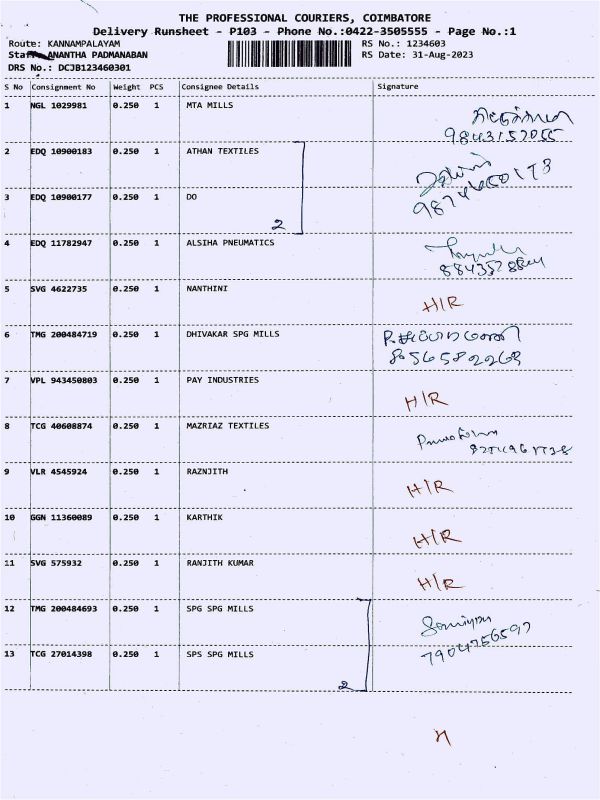 THE PROFESSIONAL COURIERS, COIMBATORE
Delivery Runsheet - P103 - Phone No.:0422-3505555 - Page No.:1
Route: KANNAMPALAYAM RS No.: 1234603
Staff: ANANTHA PADMANABAN RS Date: 31-Aug-2023
DRS No.: DCJB123460301
S No Consignment No Weight PCS Consignee Details Signature
1 NGL 1029981 0.250 1 MTA MILLS
9843157055
2 EDQ 10900183 0.250 1 ATHAN TEXTILES
3 EDQ 10900177 0.250 1 DO
2
4 EDQ 11782947 0.250 1 ALSIHA PNEUMATICS
5 SVG 4622735 0.250 1 NANTHINI H/R
6 TMG 200484719 0.250 1 DHIVAKAR SPG MILLS
8056582268
7 VPL 943450803 0.250 1 PAY INDUSTRIES H/R
8 TCG 40608874 0.250 1 MAZRIAZ TEXTILES
9 VLR 4545924 0.250 1 RAZNJITH H/R
10 GGN 11360089 0.250 1 KARTHIK H/R
11 SVG 575932 0.250 1 RANJITH KUMAR H/R
12 TMG 200484693 0.250 1 SPG SPG MILLS
7904756597
13 TCG 27014398 0.250 1 SPS SPG MILLS
2